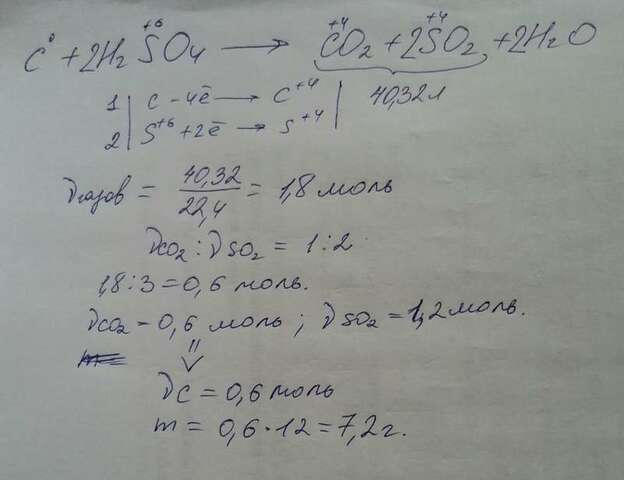 C⁰ + 2H₂S⁺⁶O₄ ⟶ C⁺⁴O₂ + 2S⁺⁴O₂ + 2H₂O
1 | C − 4ē ⟶ C⁺⁴ | 40,32 л
2 | S⁺⁶ + 2ē ⟶ S⁺⁴ |
νгазов = 40,32 / 22,4 = 1,8 моль
νCO₂ : νSO₂ = 1 : 2
1,8 : 3 = 0,6 моль.
νCO₂ = 0,6 моль ; νSO₂ = 1,2 моль.
νC = 0,6 моль
m = 0,6 · 12 = 7,2 г.